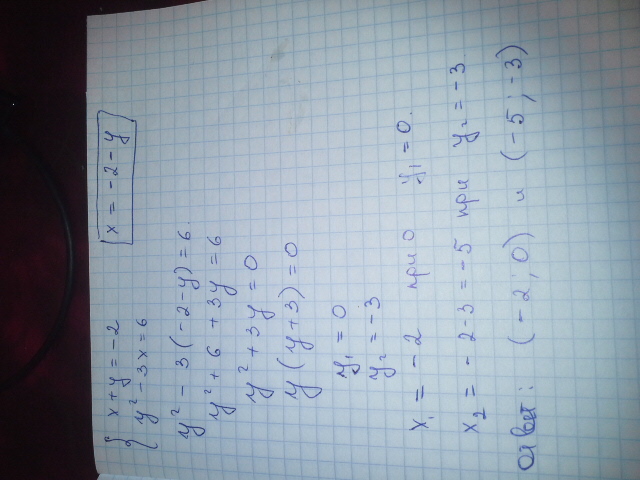 { x + y = -2
y² - 3x = 6
x = -2 - y
y² - 3(-2-y) = 6.
y² + 6 + 3y = 6
y² + 3y = 0
y(y+3) = 0
y₁ = 0
y₂ = -3
x₁ = -2 при y₁ = 0.
x₂ = -2-3 = -5 при y₂ = -3.
Ответ: (-2; 0) и (-5; -3)